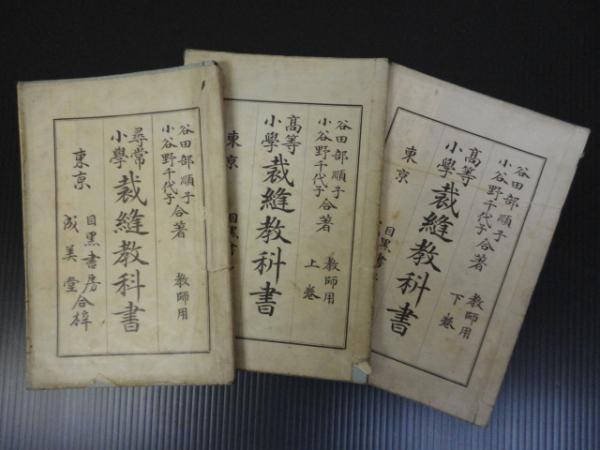 谷田部順子
小谷野千代子
合著
教師用
尋常
小學
裁縫教科書
東京
目黒書房
成美堂
合梓
谷田部順子
小谷野千代子
合著
教師用
上巻
高等
小學
裁縫教科書
東京
目黒書
谷田部順子
小谷野千代子
合著
教師用
下巻
高等
小學
裁縫教科書
東京
目黒書